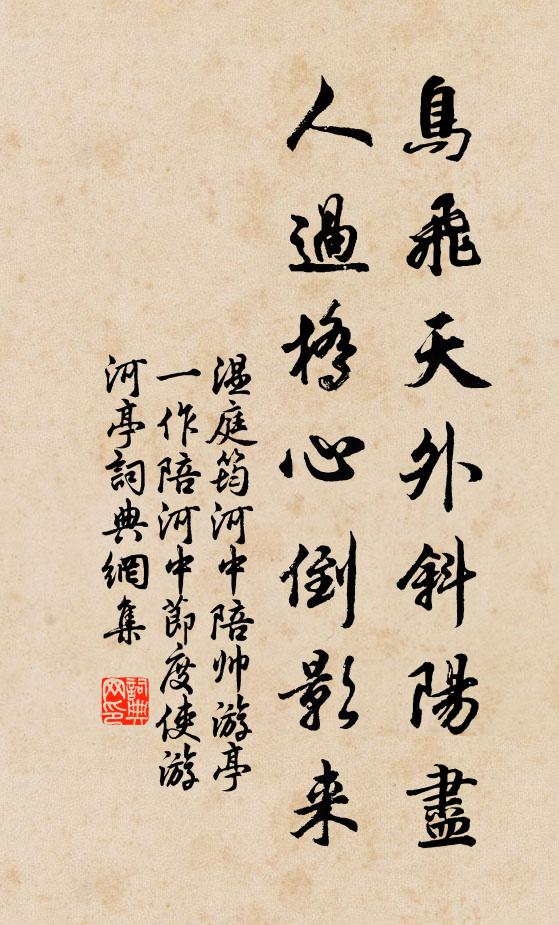 鳥飛天外斜陽盡
人過橋心倒影来
温庭筠河中陪帅游亭
一作陪河中節度使游
河亭詞典網集
詞典网印